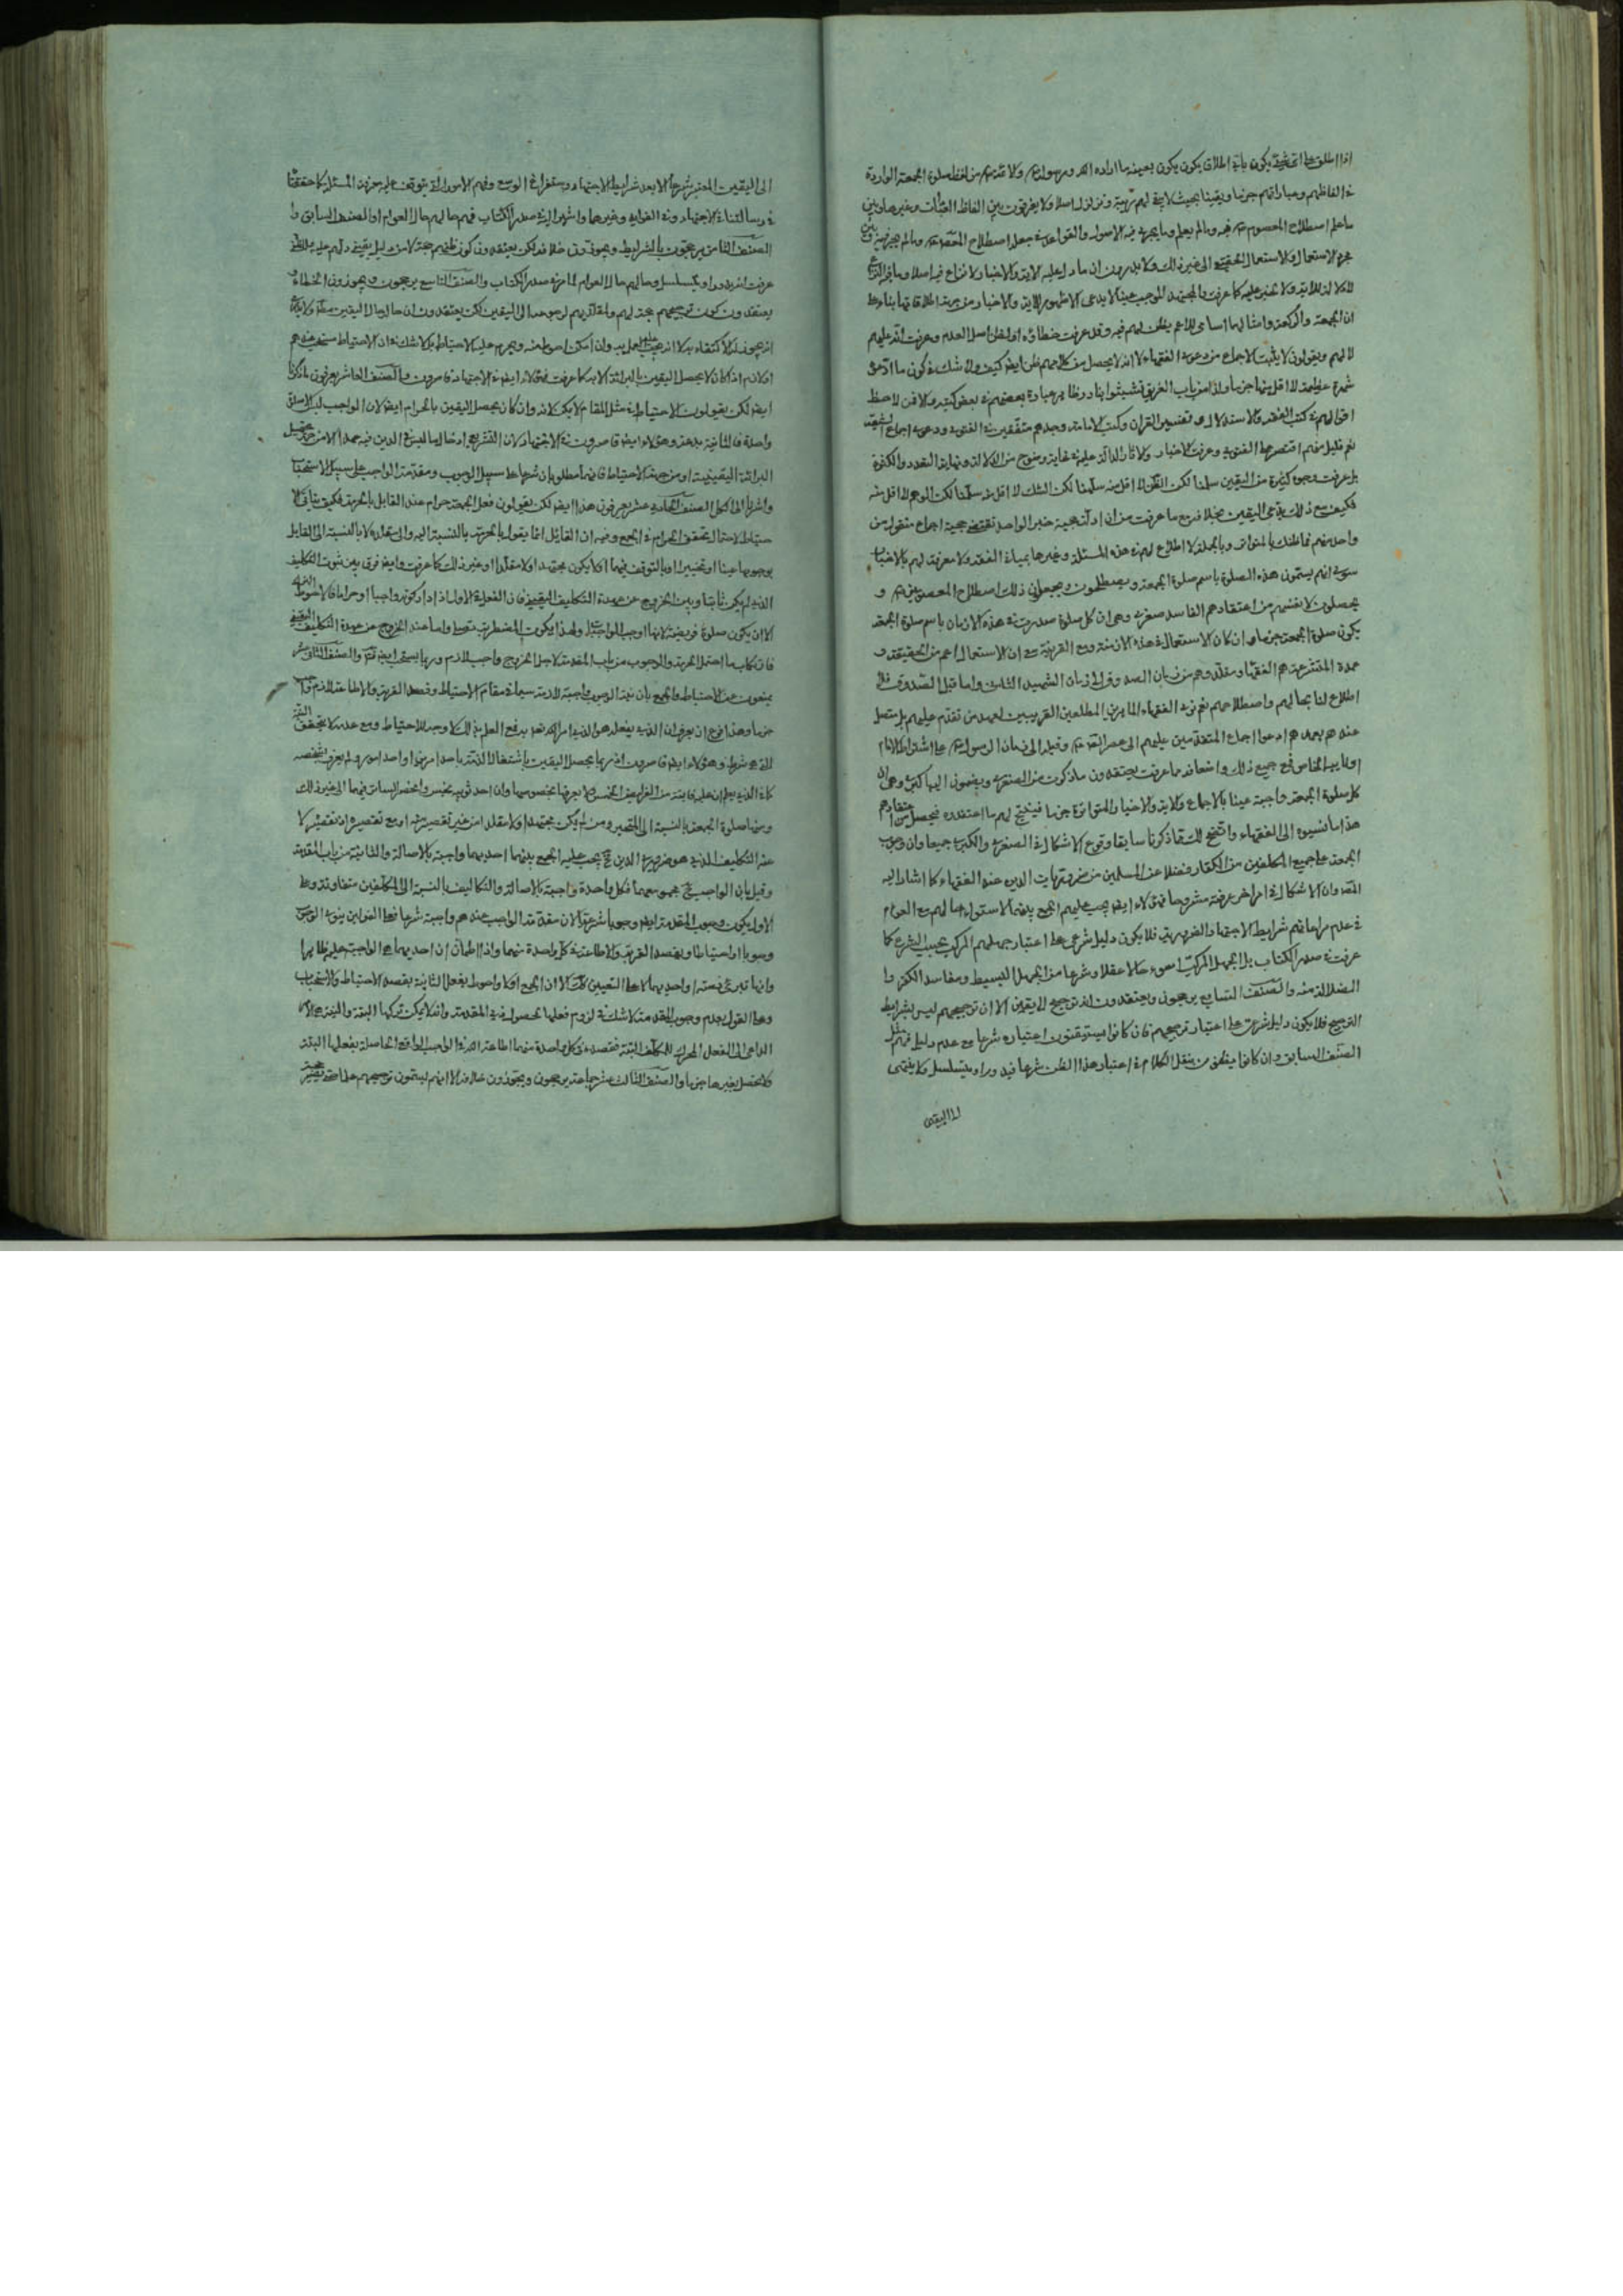 اذا اطلق على الحقيقة يكون بأي اطلاق يكون يكون بعينه ما اراده الله ورسوله والائمة من لفظ صلوة الجمعة الواردة
في الفاظهم وعباراتهم جزما ويقينا بحيث لا يبقى لهم ريبة وتزلزل اصلا ولا يفرقون بين الفاظ العبادات وغيرها وبين
ما علم اصطلاح المعصوم فيه وما لم يعلم وما يجري فيه الاصول والقواعد في جعل اصطلاح المعصوم وما لم يجر فيه وبين
مجرد الاستعمال والاستعمال الحقيقي الى غير ذلك ولا يدرون ان ما دل عليه الاية والاخبار لا نزاع فيه اصلا وما فيه النزاع
لا دلالة للاية ولا خبر عليه كما عرفت والمجتهد الموجب عينا لا يدعى الا ظهور الاية والاخبار من جهة اطلاقاتها بناء على
ان الجمعة والركعة وامثالهما اسامي للاعم يظن لهم فيه وقد عرفت خطاؤه
لا لهم ويقولون لا يثبت الاجماع من دعوى الفقهاء لانه لا يحصل من كلامهم ظن ايضا كيف ولا شك في كون ما ادعى
شهرة عظيمة لا اقل منها جزما
اقوالهم في كتب الفقه والاستدلال وتفسير القران وكتب الامامة وجدهم متفقين في الفتوى ودعوى اجماع الشيعة
نعم قليل منهم اقتصر على الفتوى وعرفت الاخبار والاثار الدالة عليه في غاية وضوح من الدلالة ونهاية التعدد والكثرة
بل عرفت وجوها كثيرة من اليقين سلمنا لكن الظن لا اقل منه سلمنا لكن الشك لا اقل منه سلمنا لكن الوهم لا اقل منه
فكيف مع ذلك يدعى اليقين بخلافه مع ما عرفت من ان ادلة حجية خبر الواحد تقتضي حجية اجماع منقول من
واحد منهم فما ظنك بالمتواتر وبالجملة لا اطلاع لهم في هذه المسئلة وغيرها بعبارة الفقه ولا معرفة لهم بالاخبار
سوى انهم يسمون هذه الصلوة باسم صلوة الجمعة ويصطلحون ويجعلون ذلك اصطلاح المعصومين و
يحصلون لانفسهم من اعتقادهم الفاسد صغرى وهي ان كل صلوة صدرت في هذه الازمان باسم صلوة الجمعة
يكون صلوة الجمعة جزما وان كان الاستعمال في هذه الازمنة ومع القرينة مع ان الاستعمال اعم من الحقيقة و
عمدة المتشرعة هم الفقهاء ومقلدوهم من زمان الصدوق الى زمان الشهيد الثاني واما قبل الصدوق فلا
اطلاع لنا بحالهم واصطلاحهم نعم نرى الفقهاء الماهرين المطلعين القريبين لعهد من تقدم عليهم بل متصل
عهدهم بعهدهم ادعوا اجماع المتقدمين عليهم الى عصر الائمة وقبله الى زمان الرسول على اشتراط الامام
او نايبه الخاص فمع جميع ذلك واضعافه مما عرفت يعتقدون ما ذكرت من الصغرى ويضمون اليها كبرى وهي ان
كل صلوة الجمعة واجبة عينا بالاجماع والاية والاخبار المتواترة جزما فينتج لهم ما اعتقدوه فيحصل من اعتقادهم
هذا ما نسبوه الى الفقهاء واتضح لك مما ذكرنا سابقا وقوع الاشكال في الصغرى والكبرى جميعا وان وجوب
الجمعة على جميع المكلفين من الكفار فضلا عن المسلمين من ضروريات الدين عند الفقهاء كما اشار اليه
الثقة وان الاشكال في امر اخر عرفته مشروحا فهؤلاء ايضا يجب عليهم الجمع بينهما لاستواء حالهم مع العوام
في عدم مراعاتهم شرايط الاجتهاد الضرورية فلا يكون دليل شرعي على اعتبار جهلهم المركب بحسب الشرع كما
عرفت في صدر الكتاب بل الجهل المركب اسوء حالا عقلا وشرعا من الجهل البسيط ومفاسده اكثر وا
لضلالة منه والصنف السابع يرجحون ويعتقدون انه ترجيح لا يقين الا ان ترجيحهم ليس بشرايط
الترجيح فلا يكون دليل شرعي على اعتبار ترجيحهم فان كانوا يستيقنون اعتباره شرعا مع عدم دليل فهم مثل
الصنف السابق وان كانوا يظنون ننقل الكلام في اعتبار هذا الظن شرعا فيدور او يتسلسل ولا ينتهى
الى اليقين
الى اليقين المعتبر شرعا الا بعد شرايط الاجتهاد واستفراغ الوسع وفهم الامور التي يتوقف عليه معرفة المسئلة كما حققناه
في رسالتنا في الاجتهاد وفي الفوايد وغيرها واشير اليه في صدر الكتاب فهم حالهم حال العوام او الصنف السابق وا
لصنف الثامن يرجحون بالشرايط ويجوزون خلافه لكن يعتقدون كون ظنهم حجة لا من دليل يقيني دلهم عليه بل ظني
عرفت انه يدور او يتسلسل وحالهم حال العوام لما مر في صدر الكتاب والصنف التاسع يرجحون ويجوزون الخطاء و
يعتقدون كون ترجيحهم حجة لهم ولمقلديهم لوصوله الى اليقين لكن يعتقدون ان حاله حال اليقين مطلقا
انه يجوز له الاكتفاء به لا انه يجب عليه العمل به وان امكن احوط منه ويحرم عليه الاحتياط بل لا شك في ان الاحتياط مستحب عندهم
او لازم اذا كان لا يحصل اليقين بالبرائة الا به كما عرفت فهؤلاء ايضا في الاجتهاد قاصرون والصنف العاشر يعرفون ما ذكرنا
ايضا لكن يقولون الاحتياط في مثل المقام لا يمكن لانه وان كان يحصل اليقين بالحرام ايضا لان الواجب ليس الا صلوة
واحدة فالثانية بدعة وهؤلاء ايضا قاصرون في الاجتهاد لان التشريع ادخال ما ليس في الدين فيه جهلا
البرائة اليقينية او من جهة الاحتياط فانهما مطلوبان شرعا على سبيل الوجوب ومقدمة الواجب على سبيل الاستحباب
واشرنا الى الكل الصنف الحادي عشر يعرفون هذا ايضا لكن يقولون فعل الجمعة حرام عند القايل بالحرمة فكيف يتأتى الا
حتياط لاحتمال تحقق الحرام في الجمع وفيه ان القائل انما يقول بالحرمة بالنسبة اليه والى مقلده لا بالنسبة الى القايل
بوجوبها عينا او تخييرا او بالتوقف فيهما او لا يكون مجتهدا ولا مقلدا او غير ذلك كما عرفت وايضا فرق بين ثبوت التكليف
الذي لم يكن ثابتا وبين الخروج عن عهدة التكليف اليقيني فان الفعل في الاول اذا دار كونه واجبا او حراما فالاحوط الترك
الا ان يكون صلوة فريضة
فان كلما احتمل الحرمة والوجوب من باب المقدمة لاجل الخروج واجب لازم وربما يستحب ايضا والصنف الثاني عشر
يمنعون عن الاحتياط والجمع بأن نية الوجوب واجبة لازمة سيما في مقام الاحتياط وقصد القربة والاطاعة لازم واجب
جزما وهذا فرع ان يعرف ان الذي يفعله هو الذي امر الله به
القربة شرط وهؤلاء ايضا قاصرون اذ ربما يحصل اليقين باشتغال الذمة باحد امرين او واحد امور ولم يعرف بشخصه
كمن الذي يعلم ان عليه فائتة من الفرايض الخمس ولا يعرفها بخصوصها وان احد ثوبيه نجس وانحصر الساتر فيهما الى غير ذلك
ومنها صلوة الجمعة بالنسبة الى المتحير ومن لم يكن مجتهدا ولا مقلدا من غير تقصير منه او مع تقصيره
عنه التكليف الذي هو ضروري الدين يجب عليه الجمع بينهما احديهما واجبة بالاصالة والثانية من باب المقدمة
وقيل بان الواجب مجموعهما فكل واحدة واجبة بالاصالة والتكاليف بالنسبة الى المكلفين متفاوتة وعلى
الاول يكون وجوب المقدمة ايضا وجوبا شرعيا لان مقدمة الواجب عندهم واجبة شرعا فعلى القولين ينوى الوجوب
وجوبا احتياطا ويقصد القربة والاطاعة في كل واحدة منهما واذا اطمأن ان احديهما هي الواجب عليه ظاهرا
وانها تبرئ ذمته واحديهما لا على التعيين كذلك الا ان الجمع اولى واحوط يفعل الثانية بقصد الاحتياط والاستحباب
وعلى القول بعدم وجوب المقدمة لا شك في لزوم فعلها لحصول ذي المقدمة وانه لا يمكن تركها البتة والنية هي
الداعي الى الفعل المحرك للمكلف البتة فقصده في كل واحدة منهما اطاعة الله في الواجب الواقع الحاصلة بفعلها البتة
ولا يحصل بغيرها جزما والصنف الثالث عشر جماعة يرجحون ويجوزون خلافه الا انهم يسمون ترجيحهم علما